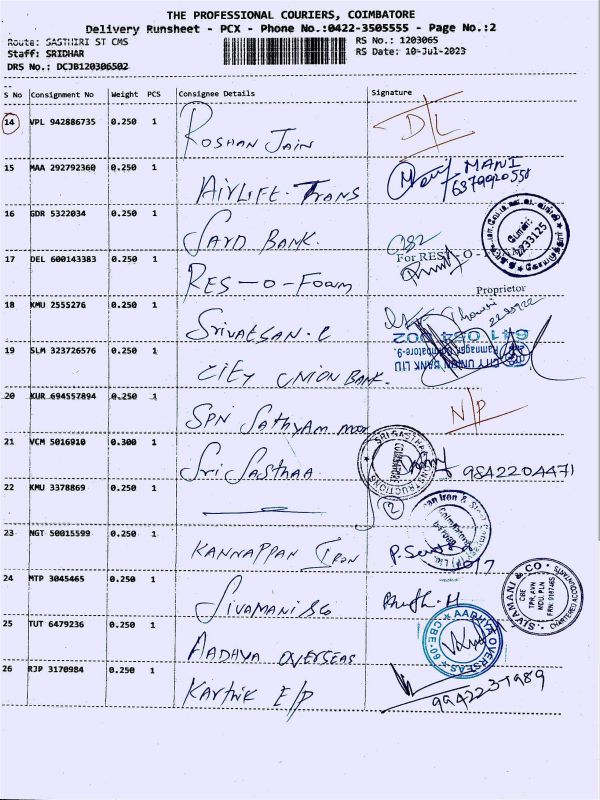 THE PROFESSIONAL COURIERS, COIMBATORE
Delivery Runsheet - PCX - Phone No.:0422-3505555 - Page No.:2
Route: SASTHIRI ST CMS
RS No.: 1203065
Staff: SRIDHAR
RS Date: 10-Jul-2023
DRS No.: DCJB120306502
S No Consignment No Weight PCS Consignee Details Signature
14 VPL 942886735 0.250 1 Roshan Jain D/L
15 MAA 292792360 0.250 1 Airlife Trans MANI
6379920558
16 GDR 5322034 0.250 1 Sayd Bank.
போன்:
2233125
17 DEL 600143383 0.250 1 Res-O-Foam
For RES-O-
Proprietor
18 KMU 2555276 0.250 1 Srivatsan. C
19 SLM 323726576 0.250 1 City Union Bank.
CITY UNION BANK LTD
Ramnagar, Coimbatore-9.
641 054 002
20 KUR 694557894 0.250 1 SPN Sathyam N/P
21 VCM 5016910 0.300 1 Sri Sasthaa 9842204471
SRI SASTHAA CONSTRUCTIONS
22 KMU 3378869 0.250 1 2
23 NGT 50015599 0.250 1 Kannappan Iron
24 MTP 3045465 0.250 1 Sivamani & Co
SIVAMANI & CO
CHARTERED ACCOUNTANTS
CBE
25 TUT 6479236 0.250 1 Aadhya Overseas
AADHYA OVERSEAS
CBE-60
26 RJP 3170984 0.250 1 Karthik E/P